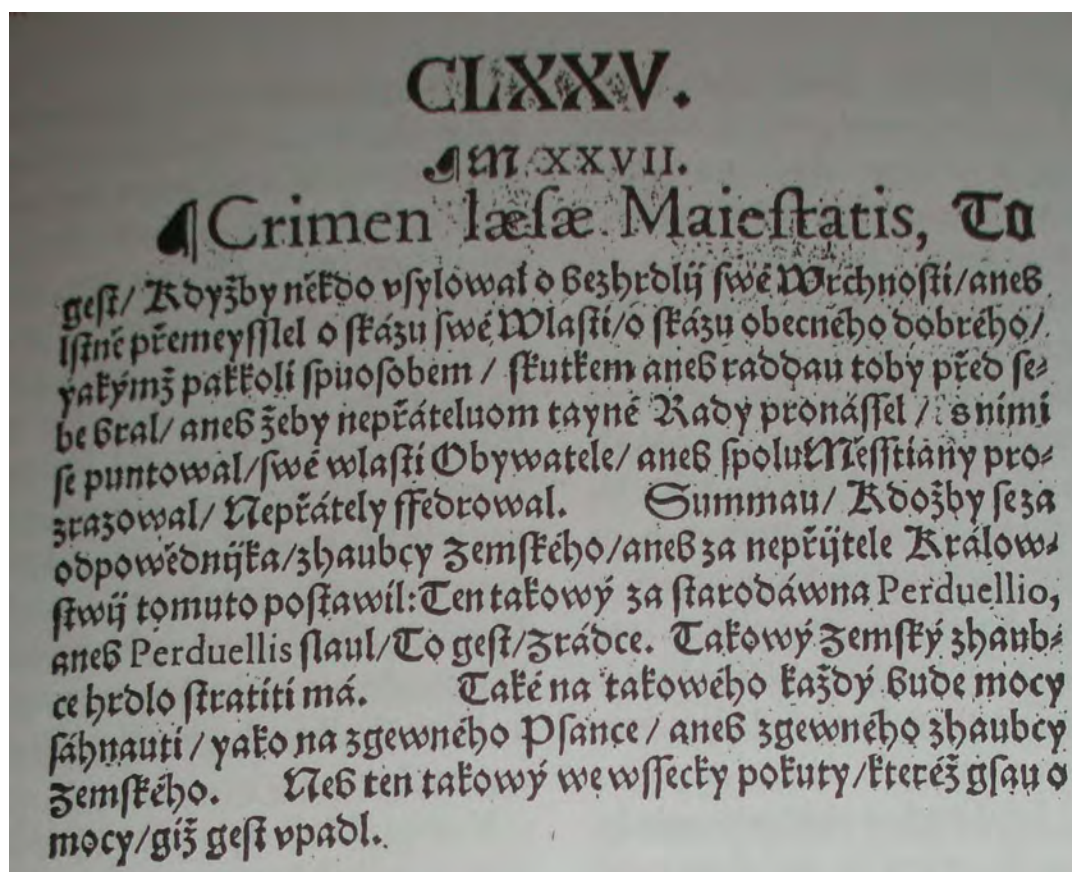 CLXXV.
¶ M XXVII.
¶ Crimen læſæ Maieſtatis, To
geſt/ Kdyžby někdo vſylowal o bezhrdlij ſwé Wrchnoſti/aneb
lſtně přemeyſſlel o ſkázu ſwé Wlaſti/o ſkázu obecného dobrého/
yakýmž pakkoli ſpuoſobem / ſkutkem aneb raddau toby před ſe⸗
be bral/ aneb žeby nepřáteluom tayné Rady pronáſſel / s nimi
ſe puntowal/ſwé wlaſti Obywatele/ aneb ſpoluMěſſtiany pro⸗
zrazowal/ Nepřátely ffedrowal. Summau/ Kdožby ſe za
odpowědnijka/zhaubcy Zemſkého/aneb za nepřijtele Králow⸗
ſtwij tomuto poſtawil: Ten takowý za ſtarodáwna Perduellio,
aneb Perduellis ſlaul/To geſt/Zrádce. Takowý Zemſký zhaub⸗
ce hrdlo ſtratiti má. Také na takowého každý bude mocy
ſáhnauti / yako na zgewného Pſance / aneb zgewného zhaubcy
Zemſkého. Neb ten takowý we wſſecky pokuty/kteréž gſau o
mocy/giž geſt vpadl.